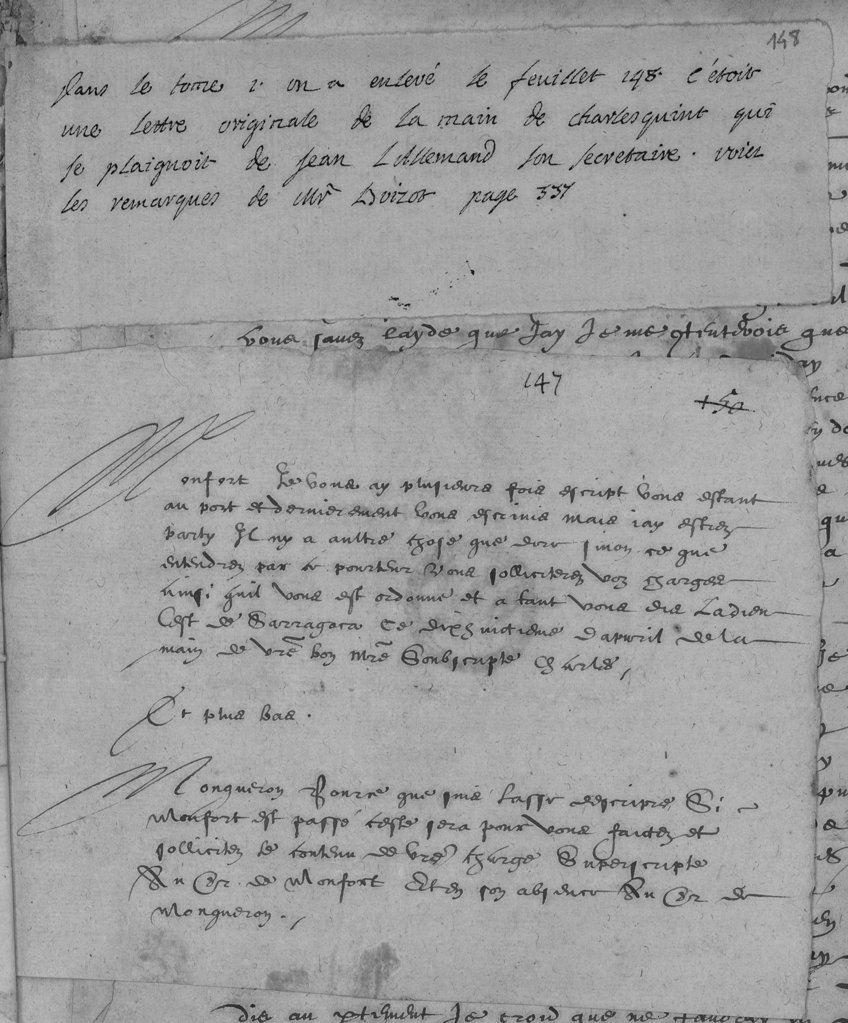 148
Dans le tome 1. on a enlevé le feuillet 148. c'étoit
une lettre originale de la main de charlesquint qui
se plaignoit de Jean Lallemand son secretaire. voiez
les remarques de Mr Boizot page 337
vous savez layde que Jay Je me
147
Monfort Je vous ay plusieurs fois escript vous estant
au port et dernierement vous escrivis mais
party Il ny a aultre chose que dire sinon ce que
entendrez par ce pourteur vous solliciterez voz charges
ainsi quil vous est ordonne et a tant vous dis
de Sarragoca ce dixhuictieme dapvril de la
main de vre bon mre Soubscripte Charles,
Et plus bas.
Mongueron Pource que suis lasse descripre Si
Monfort est passé ceste sera pour vous faictez et
sollicitez le contenu de vre charge Superscripte
Au Sr de Monfort Et en son absence Au Sr de
Mongueron.,
die au Je croid que ne